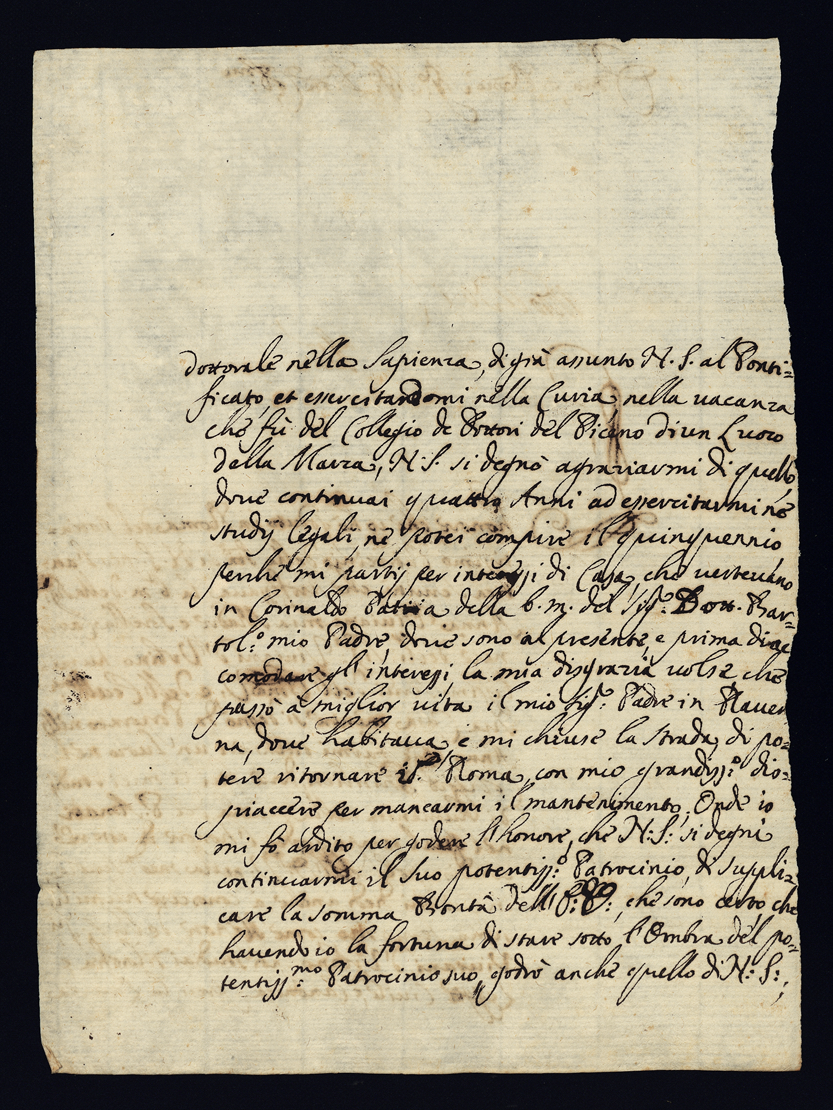 dottorale nella Sapienza, di già assunto N. S. al Ponti=
ficato, et essercitandomi nella Curia nella uacanza
che fù del Collegio de Dottori del Piceno di un Luoco
della Marca, N. S. si degnò agraziarmi di quello,
doue continuai quattro Anni ad essercitarmi ne
studij legali ne potei compire il quinquennio
perche mi partij per interessi di Casa, che uerteuano
in Corinaldo Patria della b. m. del Sig.r Dott. Bar=
tol.o mio Padre, doue sono al presente, e prima di ac
comodare gl' interessi la mia disgrazia uolse che
passò à miglior uita il mio Sig.r Padre in Rauen
na, doue habitaua, e mi chiuse la strada di po=
tere ritornare in Roma, con mio grandiss.o dis=
piaccere per mancarmi il mantenimento, Onde io
mi fò ardito per godere l'honore, che N: S: si degni
continuarmi il suo potentiss.o Patrocinio, di suppli=
care la somma Bontà dell' che sono certo che
hauendo io la fortuna di stare sotto l'Ombra del po=
tentiss.mo Patrocinio suo, godrò anche quello di N: S:,